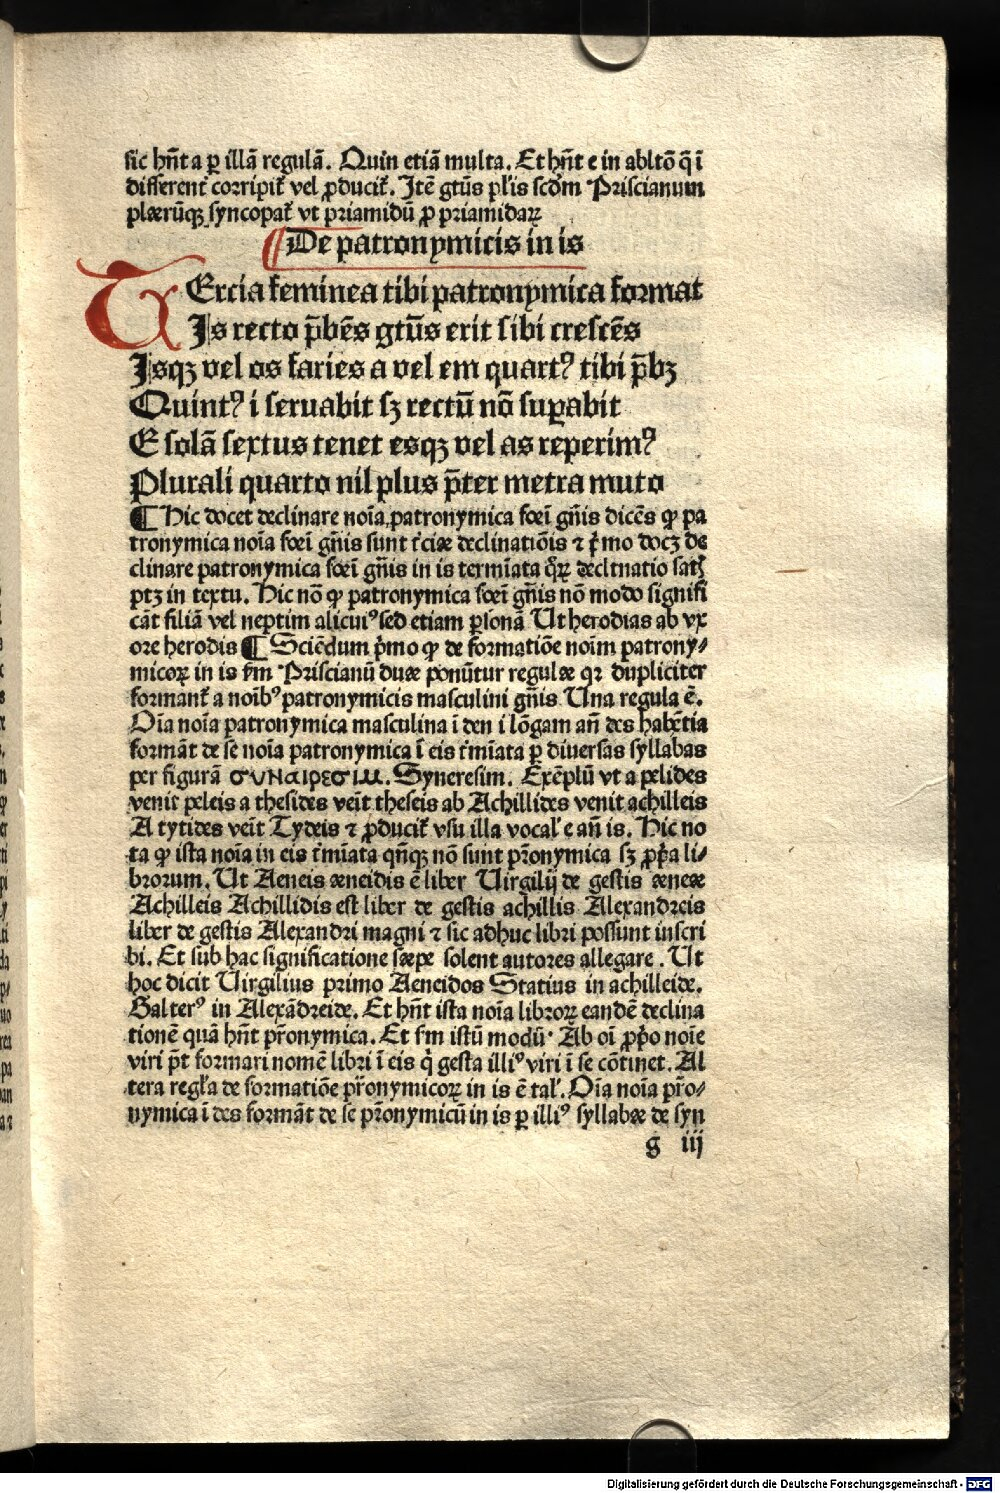 sic hñt a ꝑ illã regulã. Quin etiã multa. Et hñt e in abltõ q̃ ĩ
different̃ corripit̃ vel ꝓducit̃. Itẽ gtũs pl̃is scḋm Priscianum
plærũqꝫ syncopat̃ vt priamidũ ꝓ priamidaꝝ
De patronymicis in is
TErcia feminea tibi patronymica format
Is recto p̃bẽs gtũs erit sibi crescẽs
Isqꝫ vel os faries a vel em quartꝰ tibi p̃bꝫ
Quintꝰ i seruabit sꝫ rectũ nõ suꝑabit
E solã sextus tenet esqꝫ vel as reperimꝰ
Plurali quarto nil plus p̃ter metra muto
¶ Hic docet declinare noĩa patronymica fœĩ gñis dicẽs ꝙ pa
tronymica noĩa fœĩ gñis sunt t̃ciæ declinatiõis ⁊ p̃mo docꝫ de
clinare patronymica fœĩ gñis in is termĩata q̃ꝝ decltnatio satꝭ
ptꝫ in textu. Hic nõ ꝙ patronymica fœĩ gñis nõ modo signifi
cãt filiã vel neptim alicuiꝰ sed etiam ꝑsonã Ut herodias ab vx
ore herodis ¶ Sciẽdum p̃mo ꝙ de formatiõe noĩm patrony⸗
micoꝝ in is s̃m Priscianũ duæ ponũtur regulæ qꝛ dupliciter
formant̃ a noĩbꝰ patronymicis masculini gñis Una regula ẽ.
Oĩa noĩa patronymica masculina ĩ den i lõgam añ des habẽtia
formãt de se noĩa patronymica ĩ eis t̃mĩata ꝑ diuersas syllabas
per figurã σΥΝαιρεσιμ. Syneresim. Exẽplũ vt a pelides
venit peleis a thesides veñit theseis ab Achillides venit achilleis
A tytides veñit Tydeis ⁊ ꝓducit̃ vsu illa vocal̃ e añ is. Hic no
ta ꝙ ista noĩa in eis t̃mĩata qñqꝫ nõ sunt pr̃onymica sꝫ ꝓp̃a li⸗
brorum. Ut Aeneis æneidis ẽ liber Uirgilij de gestis æneæ
Achilleis Achillidis est liber de gestis achillis Alexandreis
liber de gestis Alexandri magni ⁊ sic adhuc libri possunt inscri
bi. Et sub hac significatione sæpe solent autores allegare. Ut
hoc dicit Uirgilius primo Aeneidos Statius in achilleide.
Galterꝰ in Alexãdreide. Et hñt ista noĩa libroꝝ eandẽ declina
tionẽ quã hñt pr̃onymica. Et s̃m istũ modũ. Ab oĩ ꝓp̃o noĩe
viri p̃t formari nomẽ libri ĩ eis q̃ gesta illiꝰ viri ĩ se cõtinet. Al
tera regl̃a de formatiõe pr̃onymicoꝝ in is ẽ tal̃. Oĩa noĩa pr̃o⸗
nymica ĩ des formãt de se pr̃onymicũ in is ꝑ illiꝰ syllabæ de syn
g iij
Digitalisierung gefördert durch die Deutsche Forschungsgemeinschaft - DFG